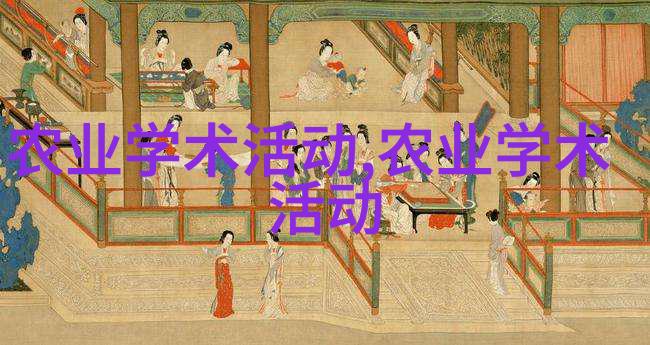 农业学术活动,农业学术
活动